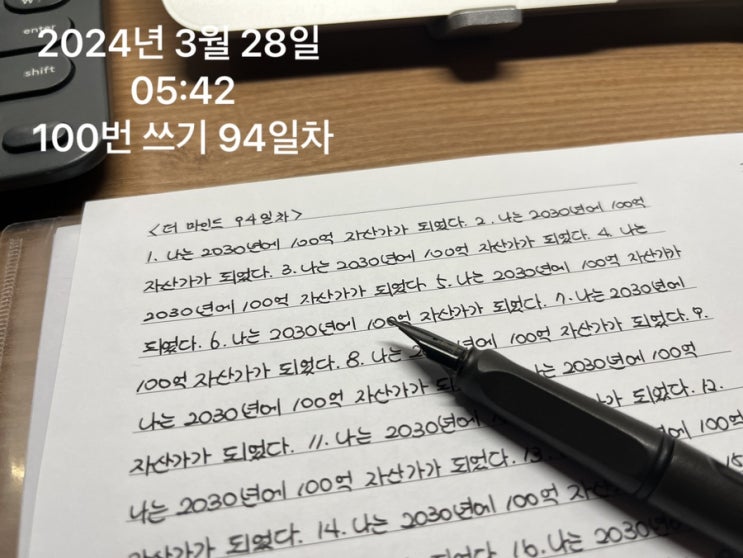 enter
shift
2024년 3월 28일
05:42
100번 쓰기 94일차
<더 마인드 94일차>
1. 나는 2030년에 100억 자산가가 되었다. 2. 나는 2030년에 100억
자산가가 되었다. 3. 나는 2030년에 100억 자산가가 되었다. 4. 나는
2030년에 100억 자산가가 되었다. 5. 나는 2030년에 100억 자산가가
되었다. 6. 나는 2030년에 100억 자산가가 되었다. 7. 나는 2030년에
100억 자산가가 되었다. 8. 나는 100억 자산가가 되었다. 9.
나는 2030년에 100억 자산가가 나는 2030년에 100억
자산가가 되었다. 11. 나는 2030년에 되었다. 12.
나는 2030년에 100억 자산가가 되었다. 13. 100억
자산가가 되었다. 14. 나는 2030년에 100억 15
되었다. 16. 나는 2030년